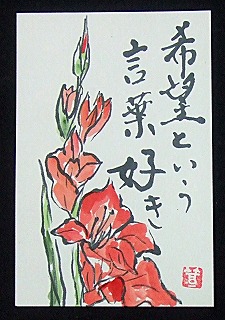 希望という
言葉好き